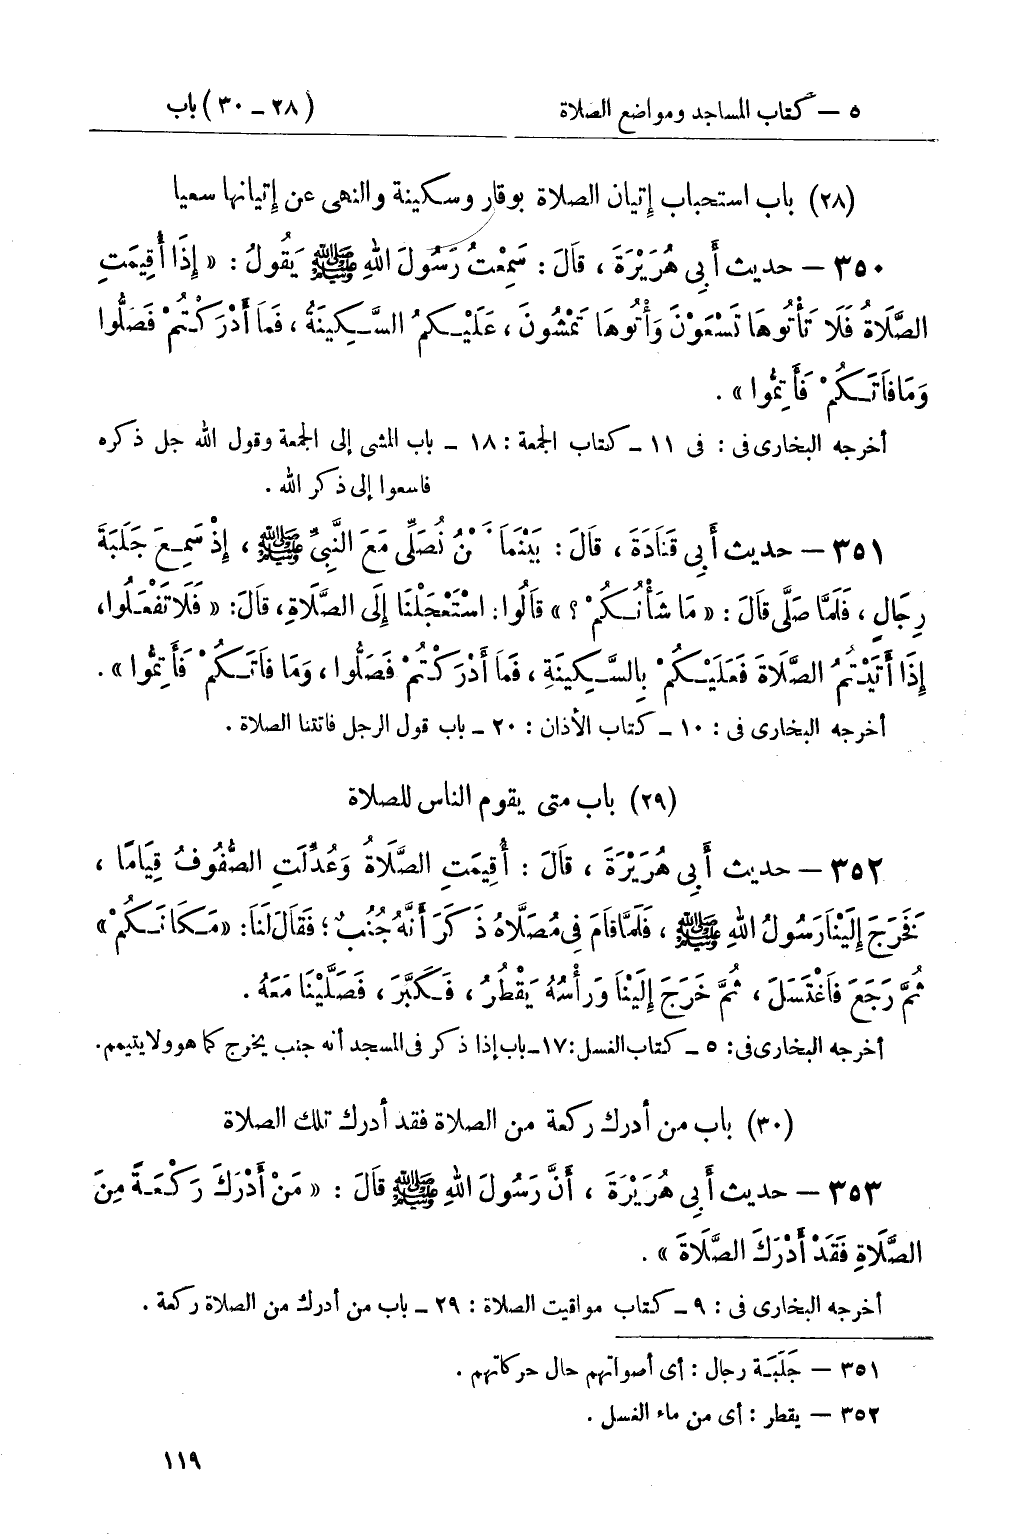 ٥ — كتاب المساجد ومواضع الصلاة (٢٨ - ٣٠) باب
(٢٨) باب استحباب إتيان الصلاة بوقار وسكينة والنهى عن إتيانها سعيا
٣٥٠ — حديث أَبِى هُرَيْرَةَ ، قَالَ : سَمِعْتُ رَسُولَ اللهِ ﷺ يَقُولُ : « إِذَا أُقِيمَتِ
الصَّلَاةُ فَلَا تَأْتُوهَا تَسْعَوْنَ وَأْتُوهَا تَمْشُونَ ، عَلَيْكُمُ السَّكِينَةُ ، فَمَا أَدْرَكْتُمْ فَصَلُّوا
وَمَا فَاتَكُمْ فَأَتِمُّوا » .
أخرجه البخارى فى : فى ١١ - كتاب الجمعة : ١٨ - باب المشى إلى الجمعة وقول الله جل ذكره
فاسعوا إلى ذكر الله .
٣٥١ — حديث أَبِى قَتَادَةَ ، قَالَ : بَيْنَمَا نَحْنُ نُصَلِّى مَعَ النَّبِىِّ ﷺ ، إِذْ سَمِعَ جَلَبَةَ
رِجَالٍ ، فَلَمَّا صَلَّى قَالَ : « مَا شَأْنُكُمْ ؟ » قَالُوا : اسْتَعْجَلْنَا إِلَى الصَّلَاةِ ، قَالَ : « فَلَا تَفْعَلُوا ،
إِذَا أَتَيْتُمُ الصَّلَاةَ فَعَلَيْكُمْ بِالسَّكِينَةِ ، فَمَا أَدْرَكْتُمْ فَصَلُّوا ، وَمَا فَاتَكُمْ فَأَتِمُّوا » .
أخرجه البخارى فى : ١٠ - كتاب الأذان : ٢٠ - باب قول الرجل فاتتنا الصلاة .
(٢٩) باب متى يقوم الناس للصلاة
٣٥٢ — حديث أَبِى هُرَيْرَةَ ، قَالَ : أُقِيمَتِ الصَّلَاةُ وَعُدِّلَتِ الصُّفُوفُ قِيَامًا ،
فَخَرَجَ إِلَيْنَا رَسُولُ اللهِ ﷺ ، فَلَمَّا قَامَ فِى مُصَلَّاهُ ذَكَرَ أَنَّهُ جُنُبٌ ؛ فَقَالَ لَنَا : « مَكَانَكُمْ »
ثُمَّ رَجَعَ فَاغْتَسَلَ ، ثُمَّ خَرَجَ إِلَيْنَا وَرَأْسُهُ يَقْطُرُ ، فَكَبَّرَ ، فَصَلَّيْنَا مَعَهُ .
أخرجه البخارى فى : ٥ - كتاب الغسل : ١٧ - باب إذا ذكر فى المسجد أنه جنب يخرج كما هو ولا يتيمم.
(٣٠) باب من أدرك ركعة من الصلاة فقد أدرك تلك الصلاة
٣٥٣ — حديث أَبِى هُرَيْرَةَ ، أَنَّ رَسُولَ اللهِ ﷺ قَالَ : « مَنْ أَدْرَكَ رَكْعَةً مِنَ
الصَّلَاةِ فَقَدْ أَدْرَكَ الصَّلَاةَ » .
أخرجه البخارى فى : ٩ - كتاب مواقيت الصلاة : ٢٩ - باب من أدرك من الصلاة ركعة .
٣٥١ — جَلَبَة رجال : أى أصواتهم حال حركاتهم .
٣٥٢ — يقطر : أى من ماء الغسل .
١١٩